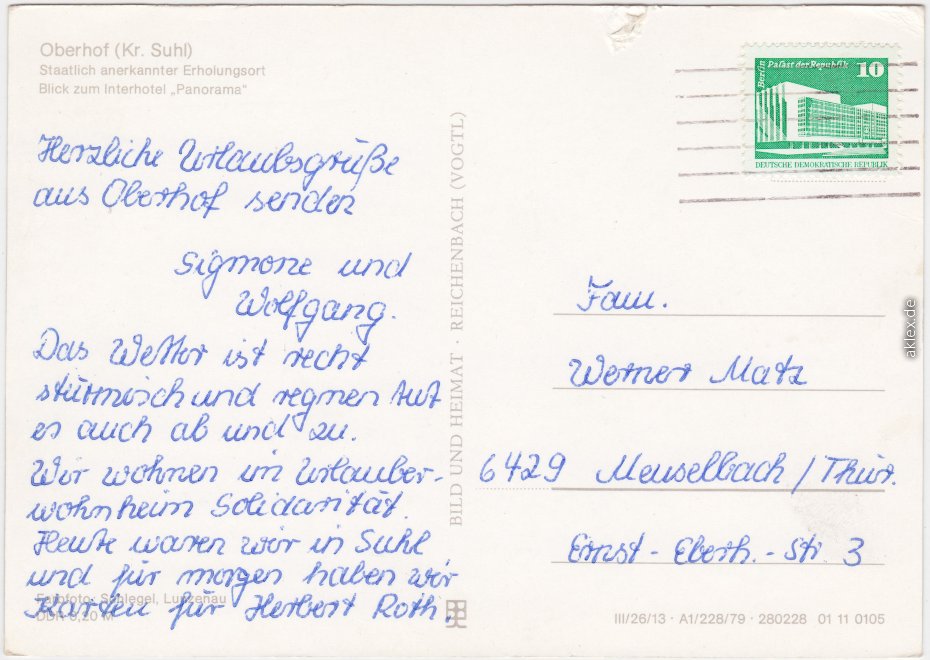 Oberhof (Kr. Suhl)
Staatlich anerkannter Erholungsort
Blick zum Interhotel „Panorama"
Herzliche Urlaubsgrüße
aus Oberhof senden
Sigmone und
Wolfgang.
Das Wetter ist recht
stürmisch und regnen tut
es auch ab und zu.
Wir wohnen im Urlauber-
wohnheim Solidarität.
Heute waren wir in Suhl
und für morgen haben wir
Karten für Herbert Roth.
Farbfoto: Schlegel, Lunzenau
DDR 0,20 M
BILD UND HEIMAT · REICHENBACH (VOGTL)
Berlin
Palast der Republik
10
DEUTSCHE DEMOKRATISCHE REPUBLIK
Fam.
Werner Matz
6429 Meuselbach / Thür.
Ernst-Eberh.-Str. 3
III/26/13 · A1/228/79 · 280228 01 11 0105
aklex.de